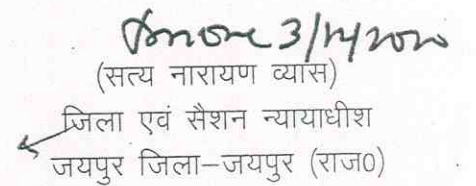 3/11/2020
(सत्य नारायण व्यास)
जिला एवं सैशन न्यायाधीश
जयपुर जिला–जयपुर (राज0)